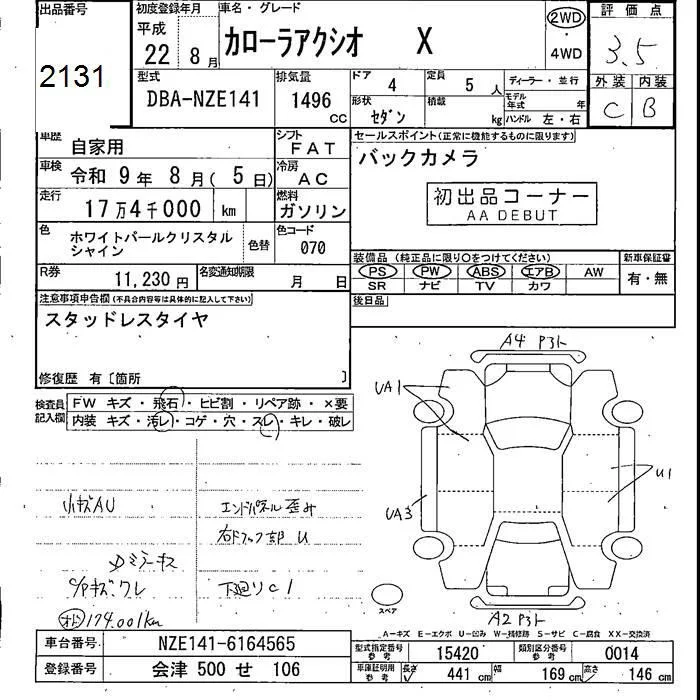 出品番号 初度登録年月 車名・グレード 2WD 評価点
2131 平成 22 8月 カローラアクシオ X 4WD 3.5
型式 排気量 ドア 4 定員 5人 ディーラー・並行 外装 内装
DBA-NZE141 1496 CC 形状 セダン 積載 kg モデル年式 年 ハンドル 左・右 C B
車歴 自家用 シフト FAT セールスポイント(正常に機能するものに限ります)
車検 令和 9年 8月(5日) 冷房 AC バックカメラ
走行 17万4千000 km 燃料 ガソリン 初出品コーナー
AA DEBUT
色 ホワイトパールクリスタルシャイン 色替 色コード 070
装備品(純正品に限り○をつけてください) 新車保証書
PS PW ABS エアB AW 有・無
SR ナビ TV カワ
R券 11,230円 名変通知期限 月 日
後日品
注意事項申告欄(不具合内容等は具体的に記入して下さい)
スタッドレスタイヤ
修復歴 有〔箇所 〕
検査員記入欄 FW キズ・飛石・ヒビ割・リペア跡・×要
内装 キズ・汚レ・コゲ・穴・スレ・キレ・破レ
A4 P3ト
UA1
U1
UA3
小キズAU エンドパネル歪み
右ドフック部 U
Dミラーキズ
C/Pキズ・ワレ 下廻りC1
オドメ 174.001km
スペア
A2 P3ト
A-キズ E-エクボ U-凹み W-補修跡 S-サビ C-腐食 XX-交換済
車台番号 NZE141-6164565 型式指定番号 参考 15420 類別区分番号 参考 0014
登録番号 会津 500 せ 106 車庫証明用 参考 長さ 441cm 幅 169cm 高さ 146cm